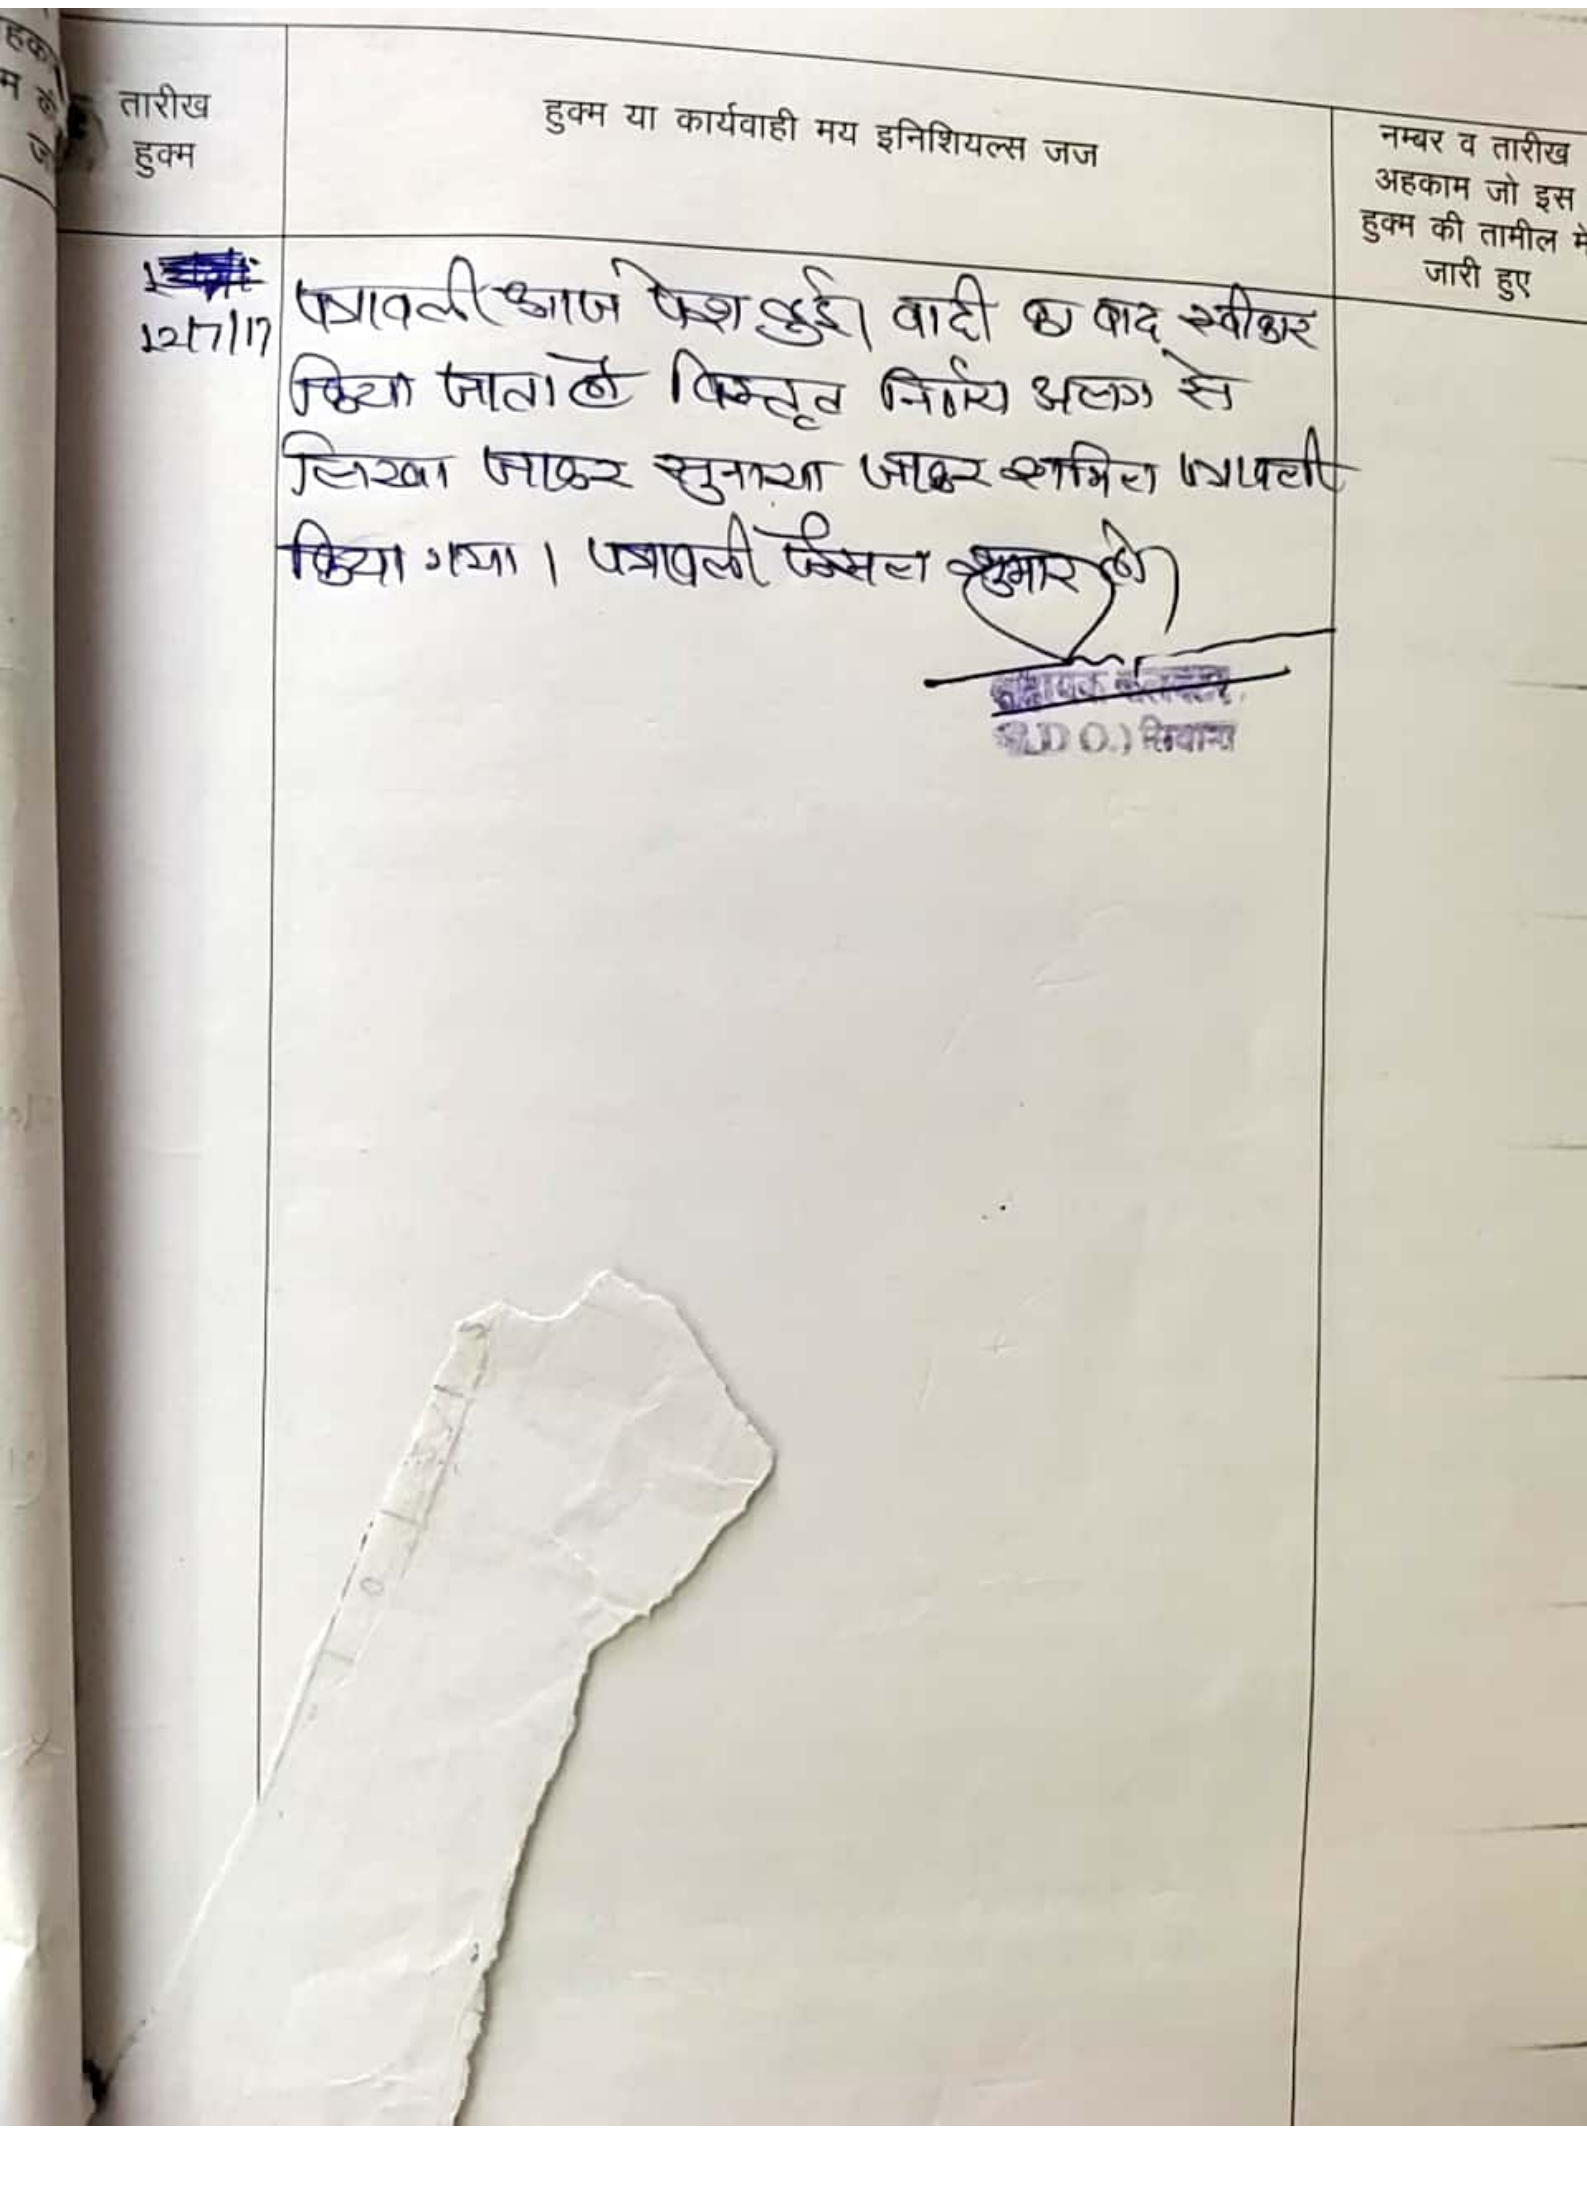 तारीख
हुक्म
हुक्म या कार्यवाही मय इनिशियल्स जज
नम्बर व तारीख
अहकाम जो इस
हुक्म की तामील में
जारी हुए
12/7/17
पत्रावली आज पेश हुई। वादी का वाद स्वीकार
किया जाता है विस्तृत निर्णय अलग से
लिखा जाकर सुनाया जाकर शामिल पत्रावली
किया गया। पत्रावली फैसल शुमार हो।
सहायक कलक्टर
(S.D.O.) सिवाना